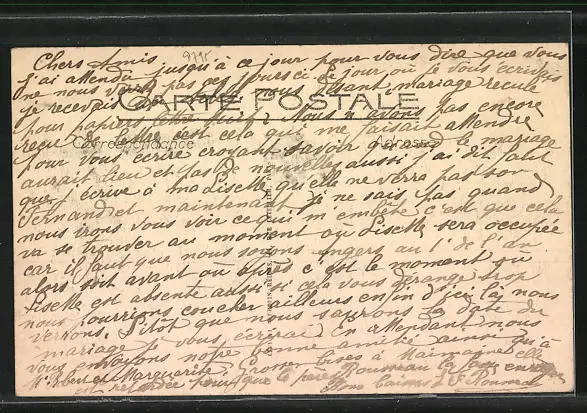 9795
Chers Amis
j'ai attendu jusqu'à ce jour pour vous dire que vous
ne nous verrez pas ces jours ci le jour où je vous écrivais
je recevais nous disant mariage reculé
CARTE POSTALE
pour papiers Nous n'avons pas encore
reçu de lettre c'est cela qui me faisait attendre
Correspondance
Adresse
pour vous écrire croyant savoir quand le mariage
aurait lieu et pas de nouvelles aussi j'ai dit faut
que j'écrive à ma diselle qu'elle ne verra pas son
Fernand et maintenant je ne sais pas quand
nous irons vous voir ce qui m'embête c'est que cela
va se trouver au moment où diselle sera occupée
car il faut que nous soyons Angers au 1er de l'an
alors soit avant ou après c'est le moment où
diselle est absente aussi si cela vous dérange trop
nous pourrions coucher ailleurs enfin d'ici là nous
verrons. Sitôt que nous saurons la date du
mariage je vous écrirai En attendant nous
vous envoyons notre bonne amitié ainsi qu'à
Mr Robert et Marguerite. Grosses bises à elle
est pour que le
Bons baisers